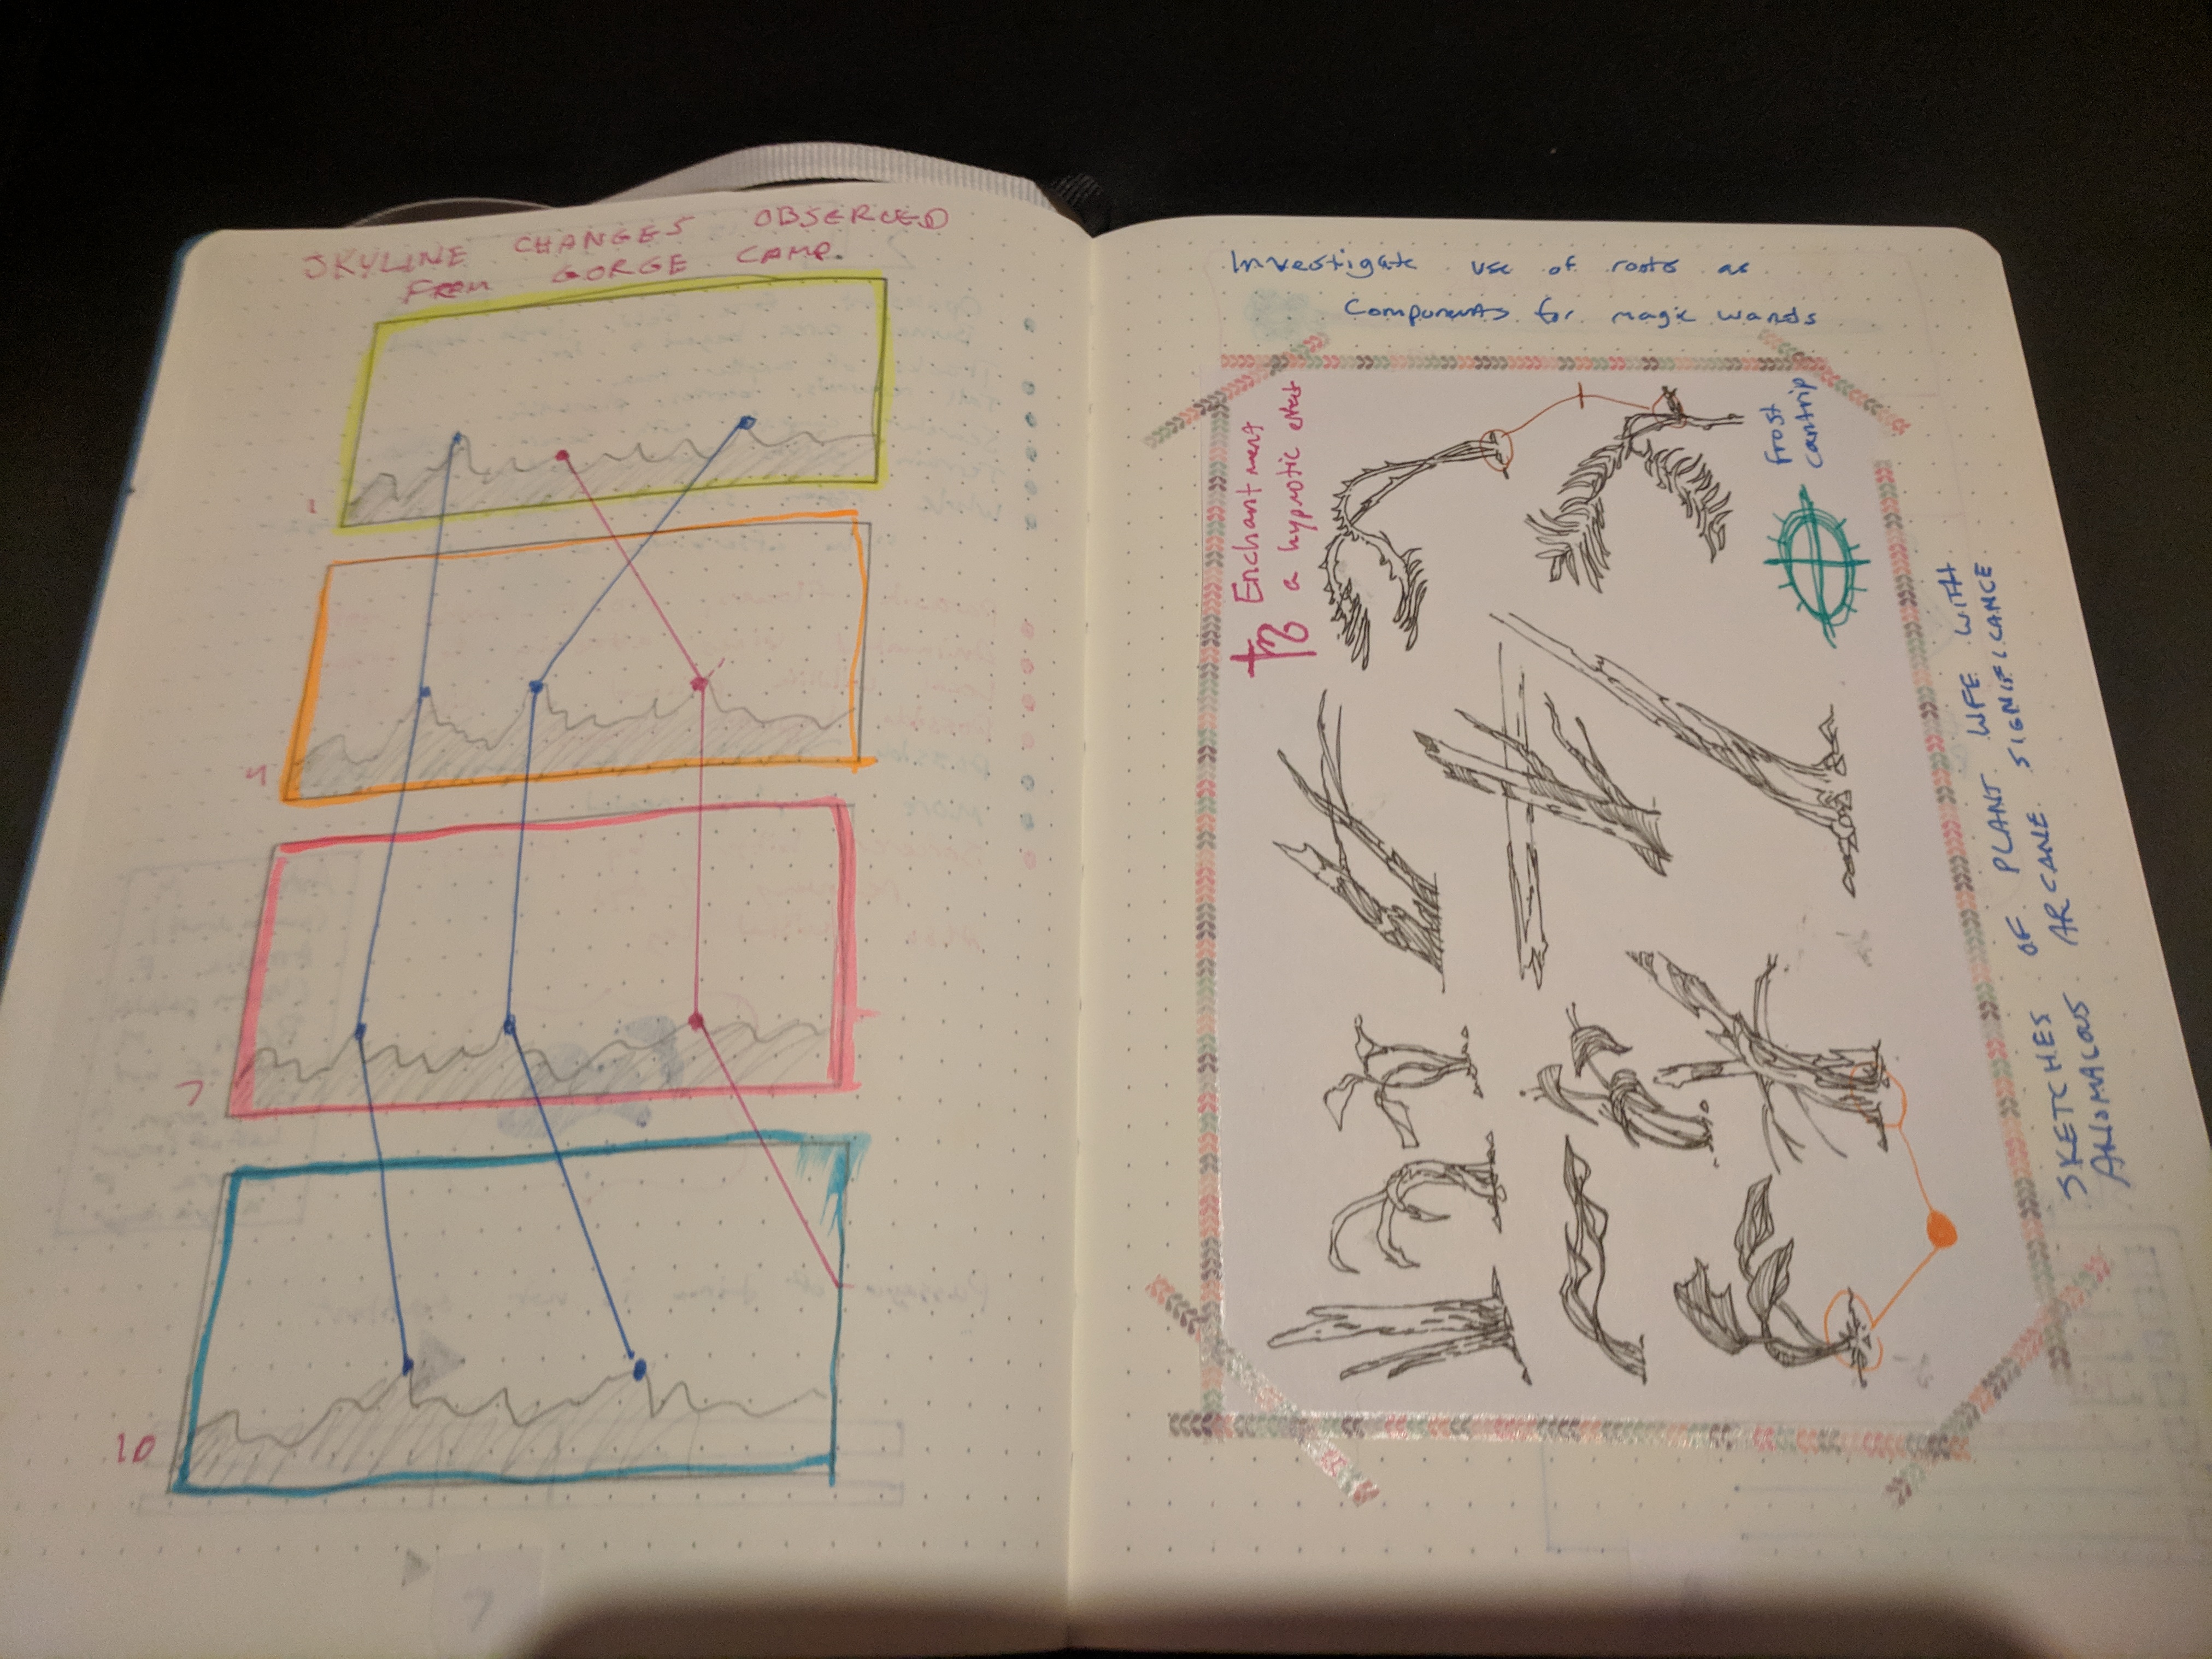 SKYLINE CHANGES OBSERVED
FROM GORGE CAMP.
1
4
7
10
Investigate use of roots as
Components for magic wands
Enchantment
a hypnotic effect
Frost
cantrip
SKETCHES OF PLANT LIFE WITH
ANOMALOUS ARCANE SIGNIFICANCE